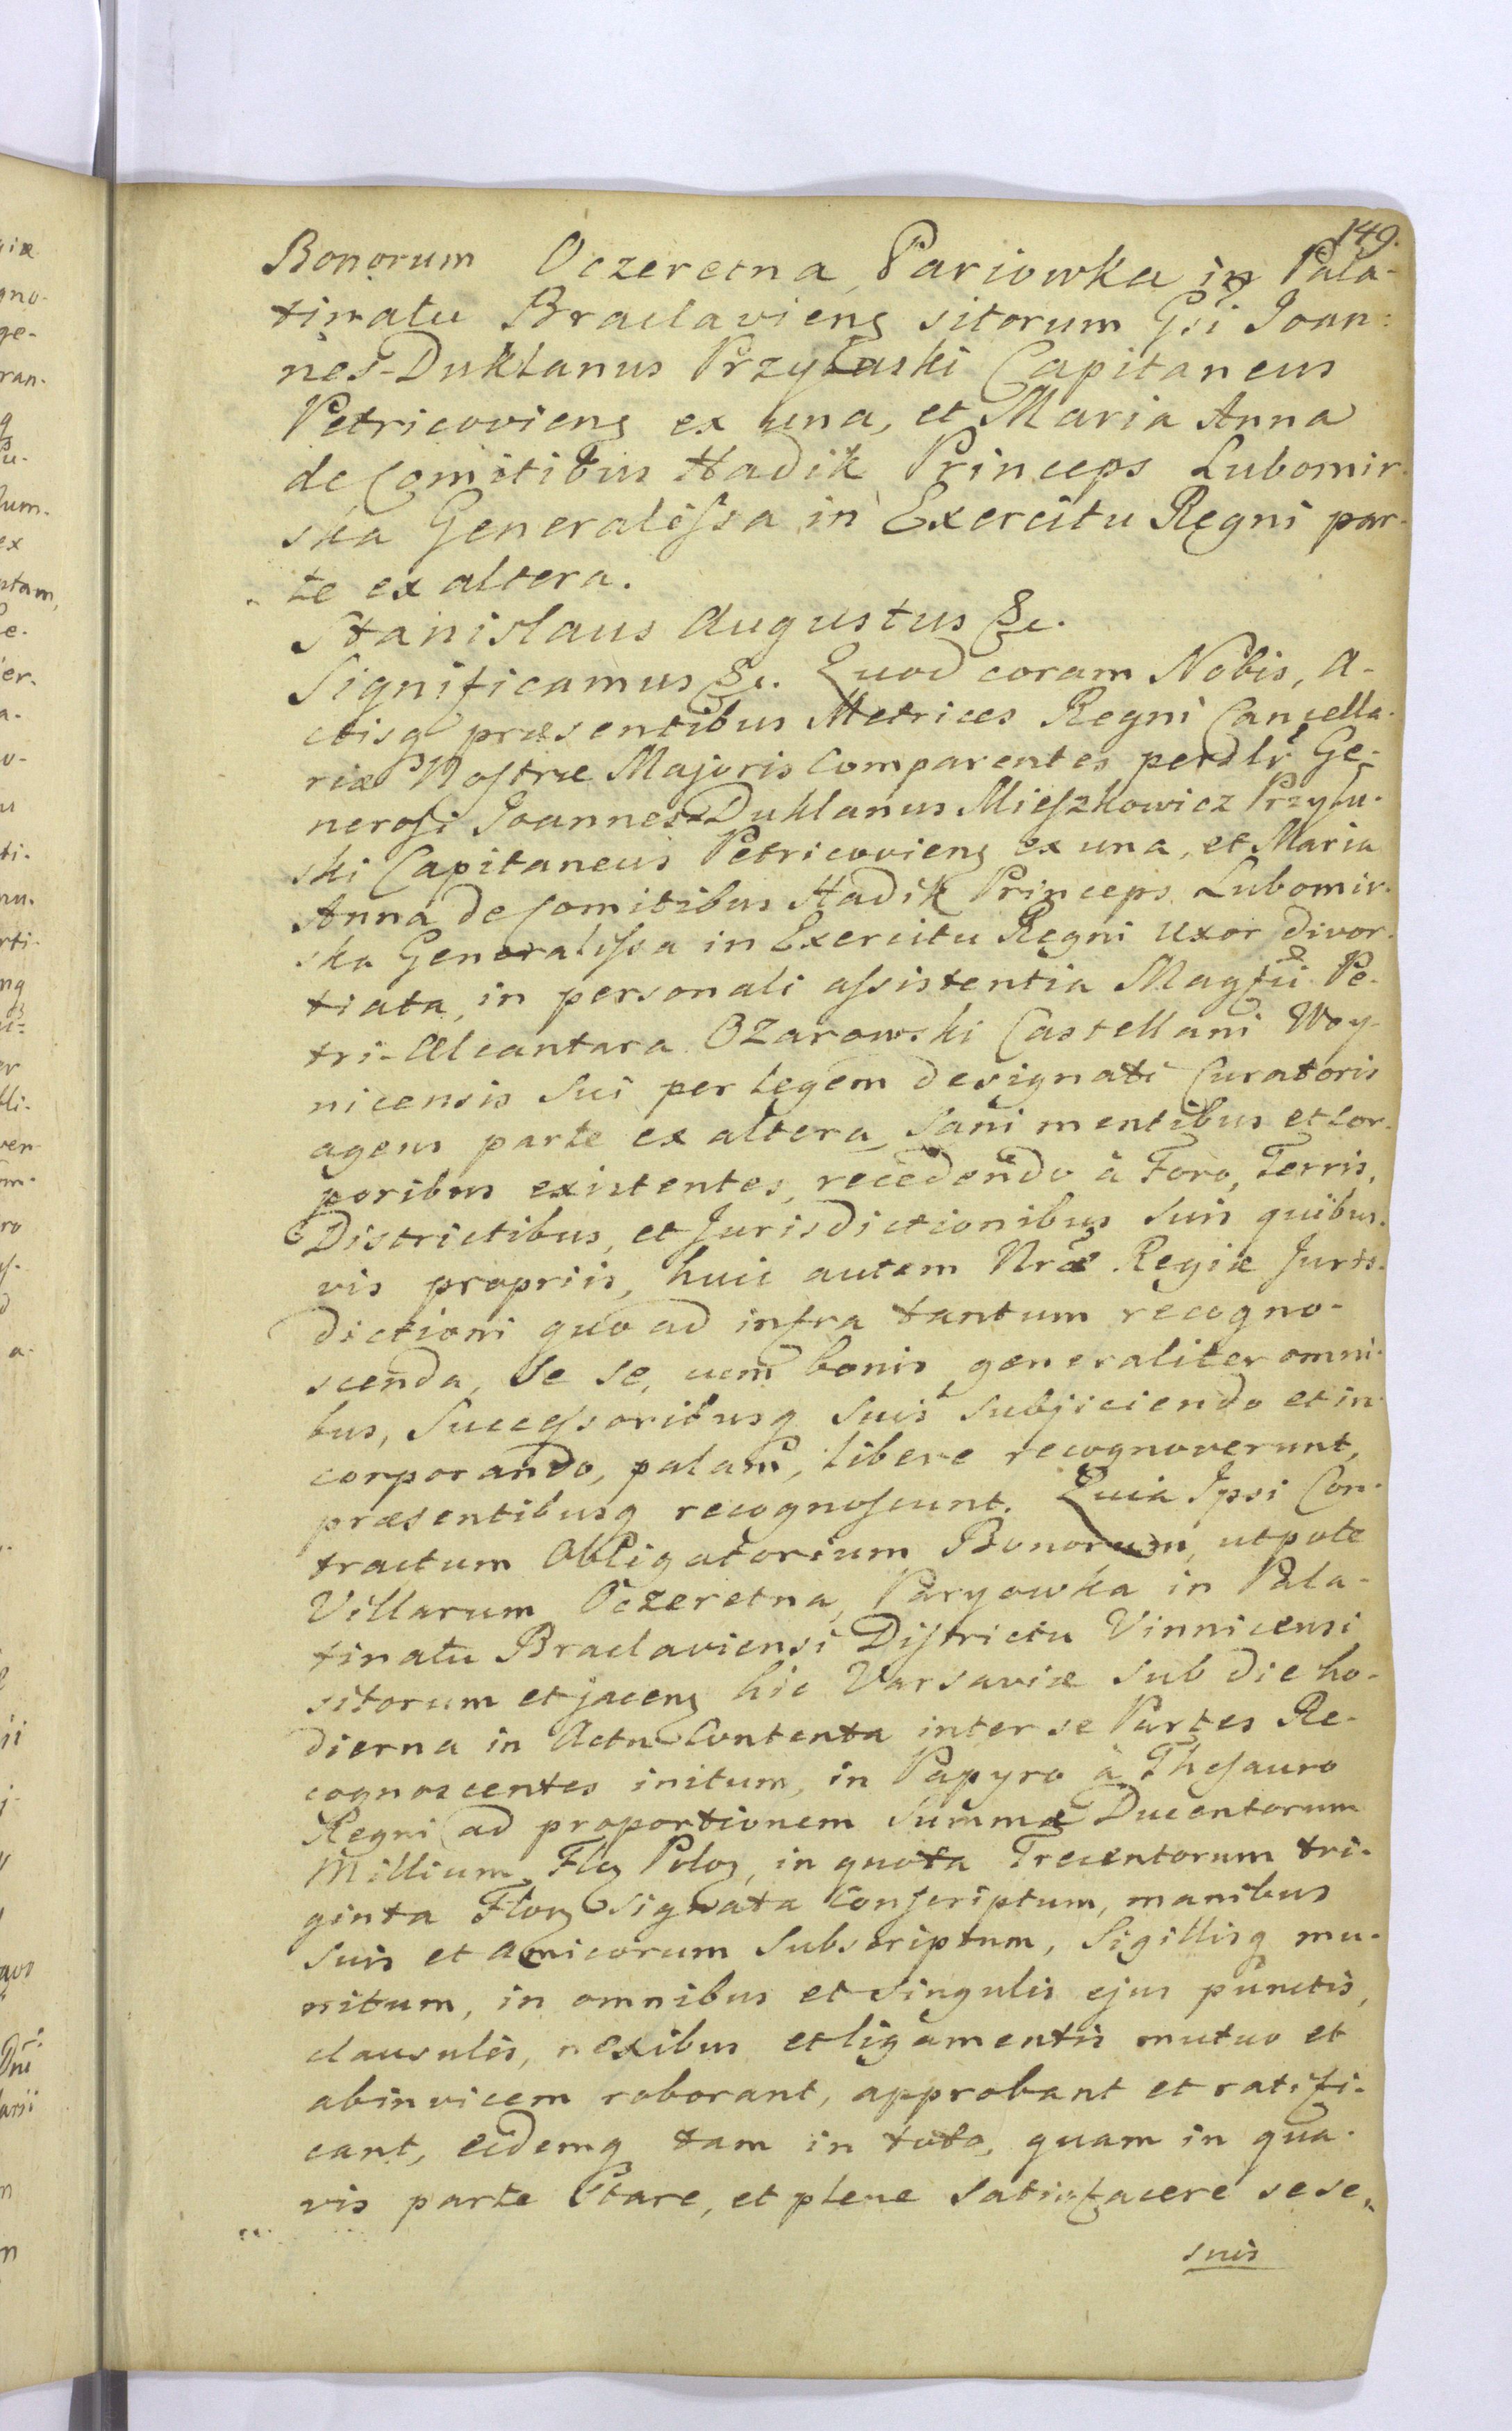 149.
Bonorum Oczeretna, Pariowka in Pala-
tinatu Braclaviens sitorum Gsi Joan:
nes-Duklanus Przyłuski Capitaneus
Petricoviens ex una, et Maria Anna
de Comitibus Hadik Princeps Lubomir-
ska Generalissa in Exercitu Regni par-
te ex altera.
Stanislaus Augustus &c.
Significamus &c. Quod coram Nobis, A-
ctisq præsentibus Metrices Regni Cancella-
riæ Nostræ Majoris Comparentes persłr Ge-
nerosi Joannes Duklanus Mieszkowicz Przyłu-
ski Capitaneus Petricoviens ex una, et Maria
Anna de Comitibus Hadik Princeps Lubomir-
ska Generalissa in Exercitu Regni Uxor divor-
tiata, in personali assistentia Magfci Pe-
tri-Alcantara Ozarowski Castellani Woy-
nicensis sui per legem designati Curatoris
agens parte ex altera, Sani mentibus et cor-
poribus existentes, recedendo à Foro, Terris,
Districtibus, et Jurisdictionibus suis quibus-
vis propriis, huic autem Nræ Regiæ Juris-
dictioni quo ad infra tantum recogno-
scenda, se se, cum bonis generaliter omni-
bus, Successoribusq suis subjiciendo et in-
corporando, palam, libere recognoverunt,
præsentibusq recognoscunt. Quia Ipsi Con-
tractum Obligatorium Bonorum, utpote
Villarum Oczeretna, Paryowka in Pala-
tinatu Braclaviensi Districtu Vinnicensi
sitorum et jacens hic Varsaviæ sub die ho-
dierna in Actu Contenta inter se Partes Re-
cognoscentes initum, in Papyro à Thesauro
Regni ad proportionem Summæ Ducentorum
Millium Flo Polo, in quota Trecentorum tri-
ginta Flor signata Conscriptum, manibus
suis et amicorum Subscriptum, Sigillisq mu-
nitum, in omnibus et singulis ejus punctis,
clausulis, nexibus et ligamentis mutuo et
abinvicem roborant, approbant et ratifi-
cant, eidemq tam in toto, quam in qua-
vis parte Stare, et plene satisfacere sese,
suis